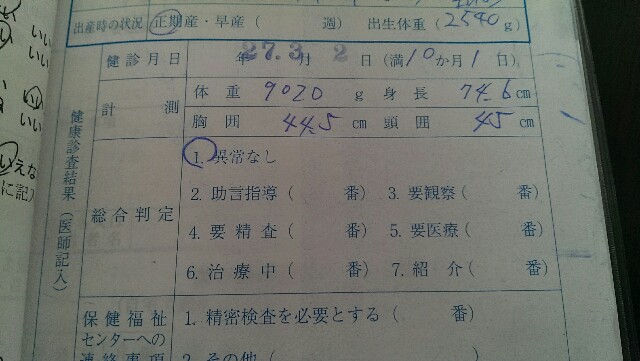 出産時の状況 正期産・早産( 週) 出生体重(2540g)
健診月日 年27.3月 2日(満10か月1日)
健康診査結果(医師記入)
計測 体重 9020 g 身長 74.6cm
胸囲 44.5 cm 頭囲 45 cm
総合判定 1. 異常なし
2. 助言指導( 番) 3. 要観察( 番)
4. 要精査( 番) 5. 要医療( 番)
6. 治療中( 番) 7. 紹介( 番)
保健福祉センターへの連絡事項
1. 精密検査を必要とする( 番)
2. その他( )
いい
いい
いえな
に記)